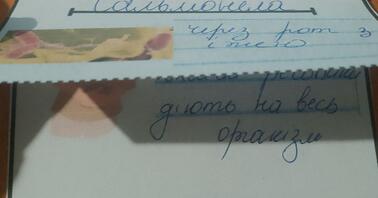 Сальмонела
через рот з
їжею
діють на весь
організм